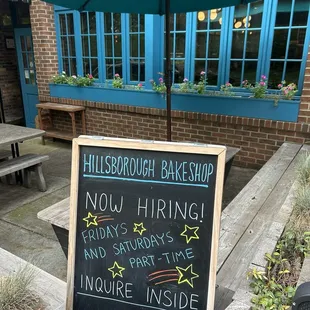 HILLSBOROUGH BAKESHOP
NOW HIRING!
FRIDAYS
AND SATURDAYS
PART-TIME
INQUIRE INSIDE